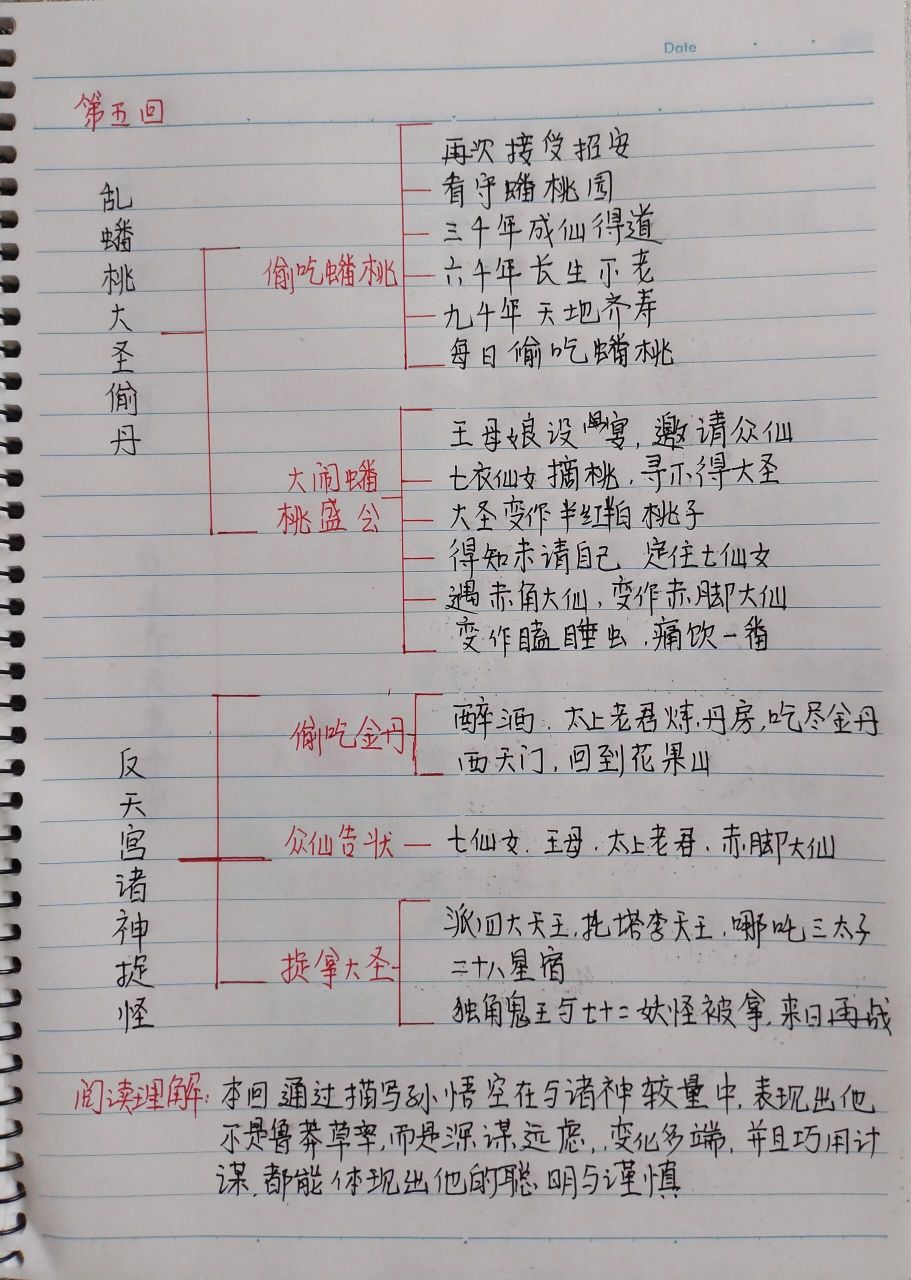 Date
第五回
乱蟠桃大圣偷丹
偷吃蟠桃
再次接受招安
看守蟠桃园
三千年成仙得道
六千年长生不老
九千年天地齐寿
每日偷吃蟠桃
大闹蟠
桃盛会
王母娘设宴,邀请众仙
七衣仙女摘桃,寻不得大圣
大圣变作半红半白桃子
得知未请自己 定住七仙女
遇赤角大仙,变作赤脚大仙
变作瞌睡虫,痛饮一番
反天宫诸神捉怪
偷吃金丹
醉酒.太上老君炼丹房,吃尽金丹
西天门,回到花果山
众仙告状
七仙女.王母.太上老君.赤脚大仙
捉拿大圣
派四大天王,托塔李天王,哪吒三太子
二十八星宿
独角鬼王与七十二妖怪被拿,来日再战
阅读理解:本回通过描写孙悟空在与诸神较量中,表现出他
不是鲁莽草率,而是深谋远虑,变化多端,并且巧用计
谋,都能体现出他的聪明与谨慎